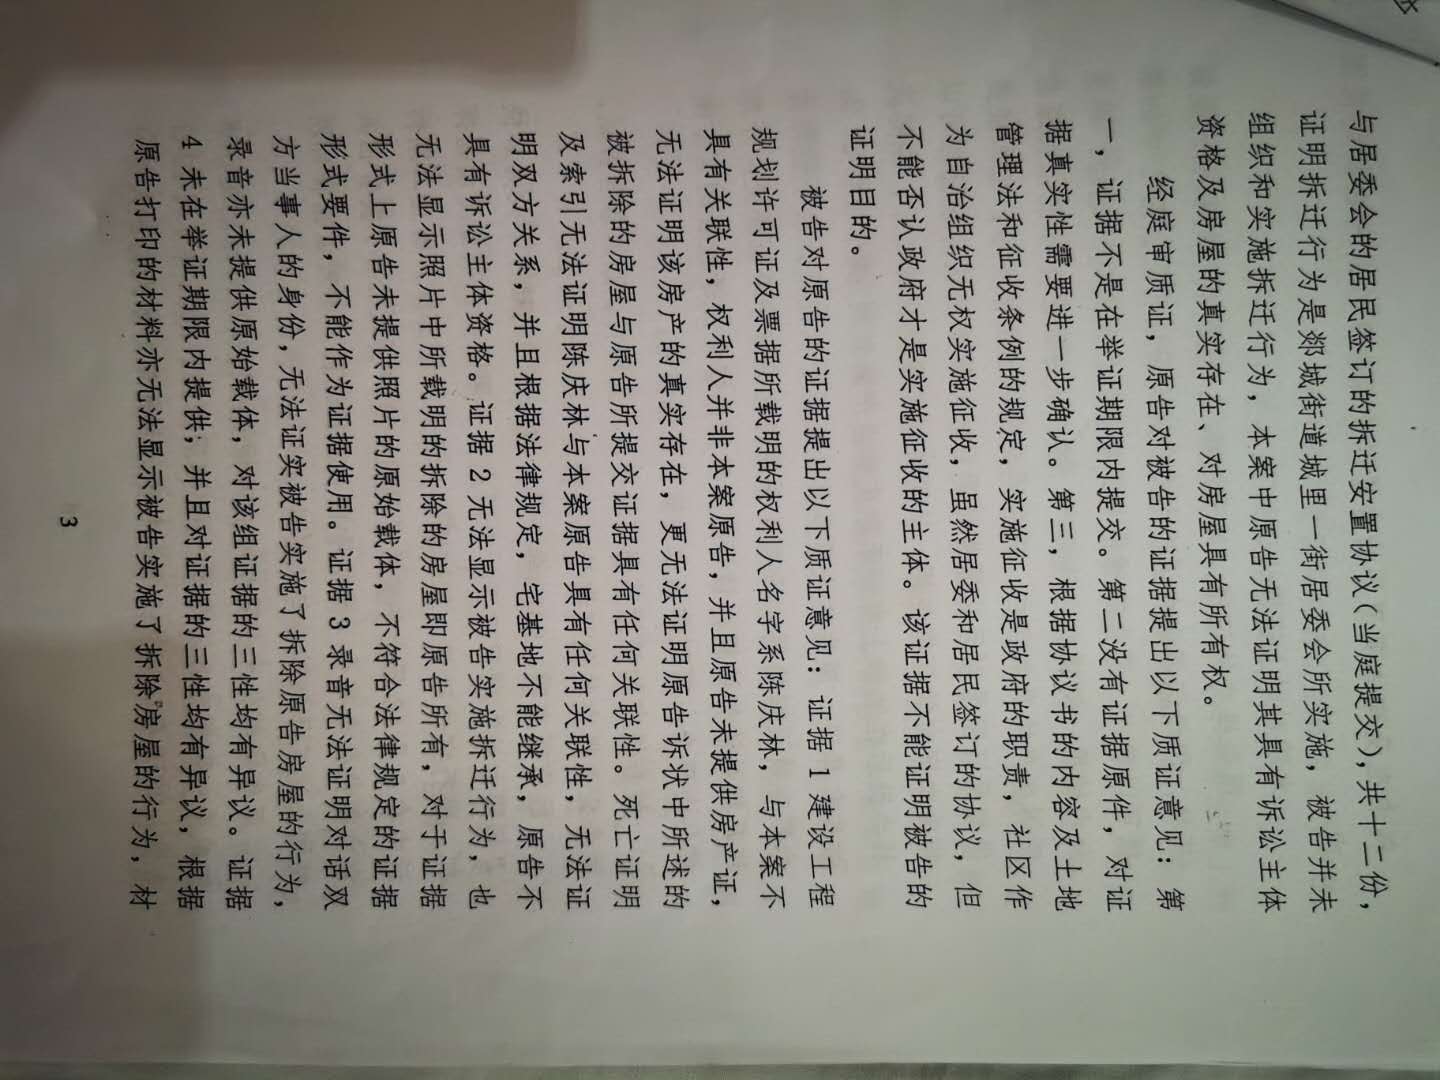 与居委会的居民签订的拆迁安置协议（当庭提交），共十二份，
证明拆迁行为是郯城街道城里一街居委会所实施，被告并未
组织和实施拆迁行为，本案中原告无法证明其具有诉讼主体
资格及房屋的真实存在、对房屋具有所有权。
经庭审质证，原告对被告的证据提出以下质证意见：第
一，证据不是在举证期限内提交。第二没有证据原件，对证
据真实性需要进一步确认。第三，根据协议书的内容及土地
管理法和征收条例的规定，实施征收是政府的职责，社区作
为自治组织无权实施征收，虽然居委和居民签订的协议，但
不能否认政府才是实施征收的主体。该证据不能证明被告的
证明目的。
被告对原告的证据提出以下质证意见：证据1建设工程
规划许可证及票据所载明的权利人名字系陈庆林，与本案不
具有关联性，权利人并非本案原告，并且原告未提供房产证，
无法证明该房产的真实存在，更无法证明原告诉状中所述的
被拆除的房屋与原告所提交证据具有任何关联性。死亡证明
及索引无法证明陈庆林与本案原告具有任何关联性，无法证
明双方关系，并且根据法律规定，宅基地不能继承，原告不
具有诉讼主体资格。证据2无法显示被告实施拆迁行为，也
无法显示照片中所载明的拆除的房屋即原告所有，对于证据
形式上原告未提供照片的原始载体，不符合法律规定的证据
形式要件，不能作为证据使用。证据3录音无法证明对话双
方当事人的身份，无法证实被告实施了拆除原告房屋的行为，
录音亦未提供原始载体，对该组证据的三性均有异议。证据
4未在举证期限内提供；并且对证据的三性均有异议，根据
原告打印的材料亦无法显示被告实施了拆除房屋的行为，材
3